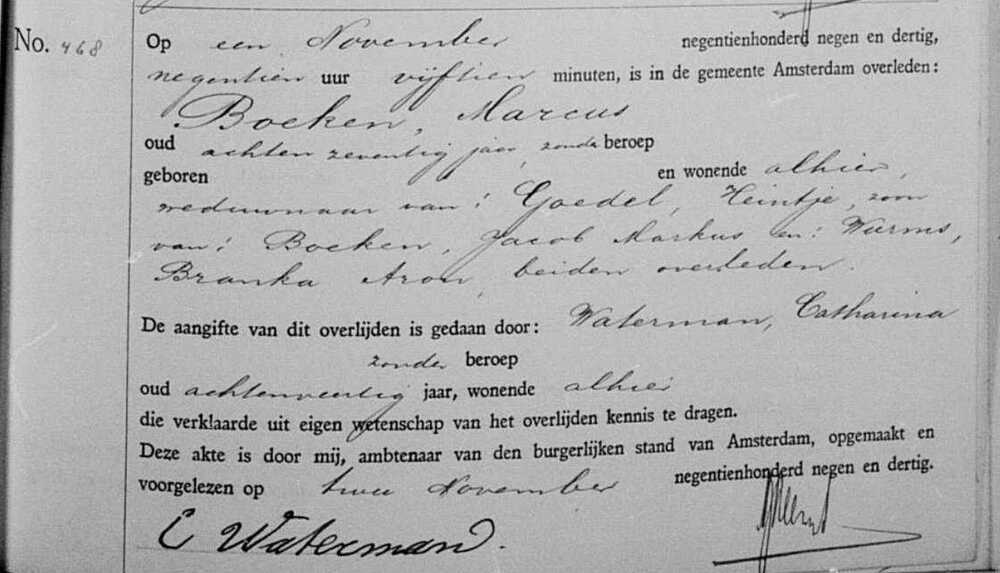 No. 468
Op een November negentienhonderd negen en dertig,
negentien uur vijftien minuten, is in de gemeente Amsterdam overleden:
Boeken, Marcus
oud achtenzeventig jaar, zonder beroep
geboren en wonende alhier,
weduwnaar van: Goedel, Heintje, zoon
van: Boeken, Jacob Markus en: Wurms,
Branka Aron, beiden overleden.
De aangifte van dit overlijden is gedaan door: Waterman, Catharina
zonder beroep
oud achtenveertig jaar, wonende alhier
die verklaarde uit eigen wetenschap van het overlijden kennis te dragen.
Deze akte is door mij, ambtenaar van den burgerlijken stand van Amsterdam, opgemaakt en
voorgelezen op twee November negentienhonderd negen en dertig.
C Waterman.